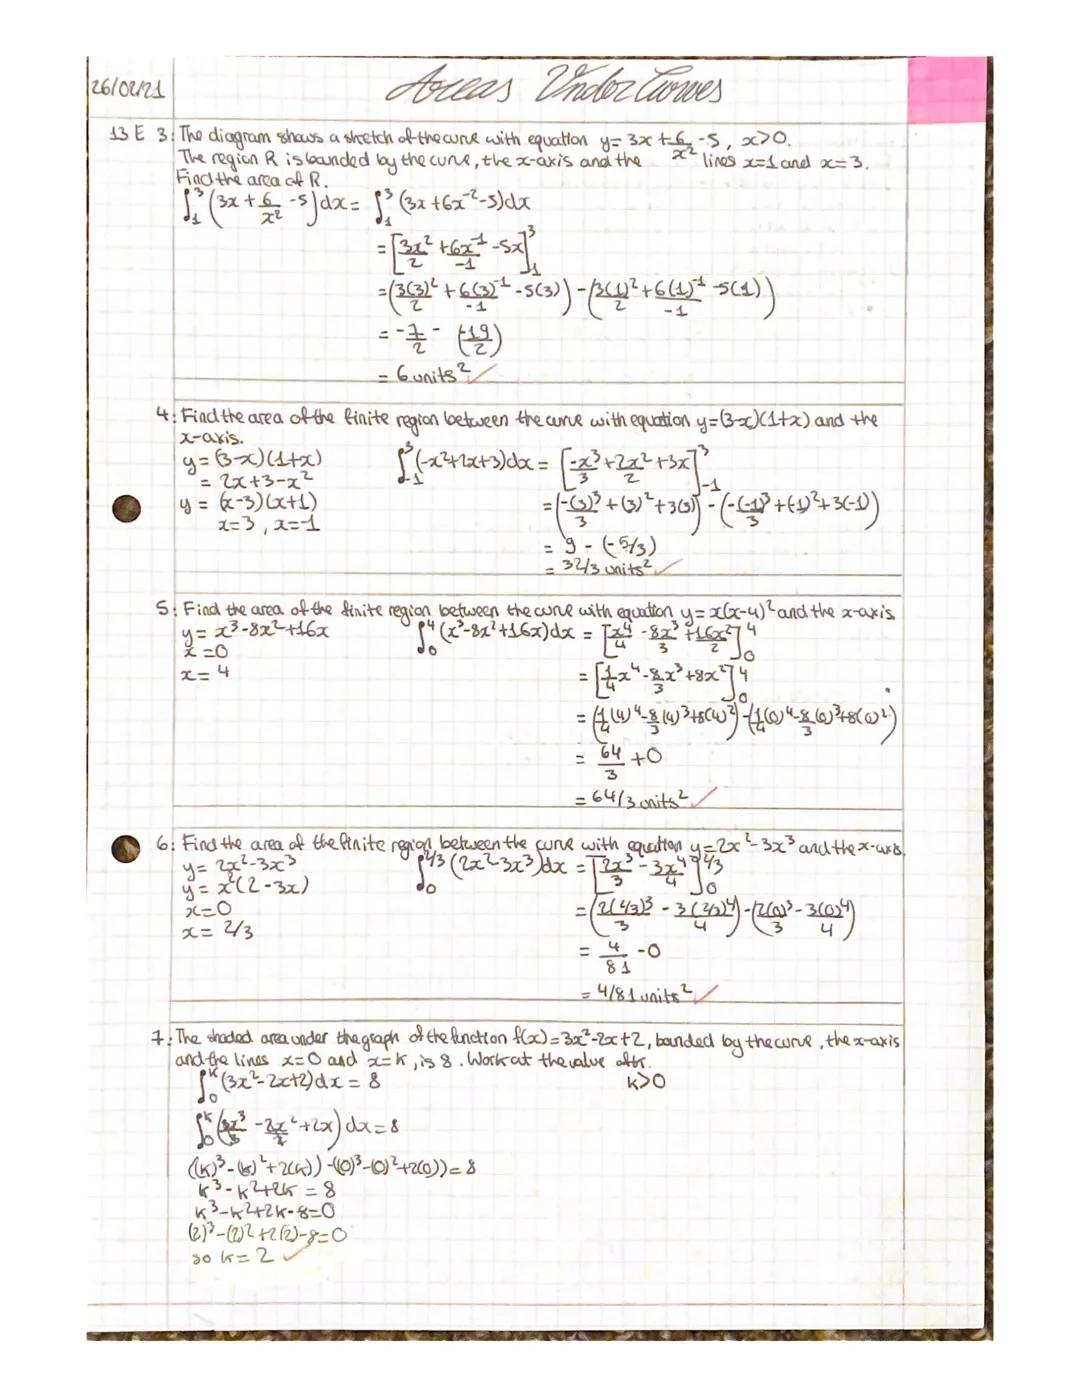 26/02/21 Areas Under Curves
13 E 3: The diagram shows a sketch of the curve with equation y = 3x + 6/x² - 5, x>0.
The region R is bounded by the curve, the x-axis and the lines x=1 and x=3.
Find the area of R.
∫₁³ (3x + 6/x² - 5)dx = ∫₁³ (3x + 6x⁻² - 5)dx
= [3x²/2 + 6x⁻¹/-1 - 5x]₁³
= (3(3)²/2 + 6(3)⁻¹/-1 - 5(3)) - (3(1)²/2 + 6(1)⁻¹/-1 - 5(1))
= -7/2 - (-19/2)
= 6 units² ✓
4: Find the area of the finite region between the curve with equation y=(3-x)(1+x) and the
x-axis.
y = (3-x)(1+x)
= 2x+3-x²
y = (x-3)(x+1)
x=3, x=-1
∫₋₁³ (-x²+2x+3)dx = [-x³/3 + 2x²/2 + 3x]₋₁³
= (-(3)³/3 + (3)² + 3(3)) - (-(-1)³/3 + (-1)² + 3(-1))
= 9 - (-5/3)
= 32/3 units² ✓
5: Find the area of the finite region between the curve with equation y = x(x-4)² and the x-axis
y = x³-8x²+16x
x = 0
x = 4
∫₀⁴ (x³-8x²+16x)dx = [x⁴/4 - 8x³/3 + 16x²/2]₀⁴
= [1/4x⁴ - 8/3x³ + 8x²]₀⁴
= (1/4(4)⁴ - 8/3(4)³ + 8(4)²) - (1/4(0)⁴ - 8/3(0)³ + 8(0)²)
= 64/3 + 0
= 64/3 units² ✓
6: Find the area of the finite region between the curve with equation y=2x²-3x³ and the x-axis.
y = 2x²-3x³
y = x²(2-3x)
x=0
x= 2/3
∫₀^2/3 (2x²-3x³)dx = [2x³/3 - 3x⁴/4]₀^2/3
= (2(2/3)³/3 - 3(2/3)⁴/4) - (2(0)³/3 - 3(0)⁴/4)
= 4/81 - 0
= 4/81 units² ✓
7: The shaded area under the graph of the function f(x)=3x²-2x+2, bounded by the curve, the x-axis
and the lines x=0 and x=k, is 8. Work out the value of k.
∫₀ᵏ (3x²-2x+2)dx = 8 k>0
∫₀ᵏ (3x³/3 - 2x²/2 + 2x)dx = 8
((k)³-(k)²+2(k)) - ((0)³-(0)²+2(0)) = 8
k³-k²+2k = 8
k³-k²+2k-8=0
(2)³-(2)²+2(2)-8=0
so k= 2 ✓